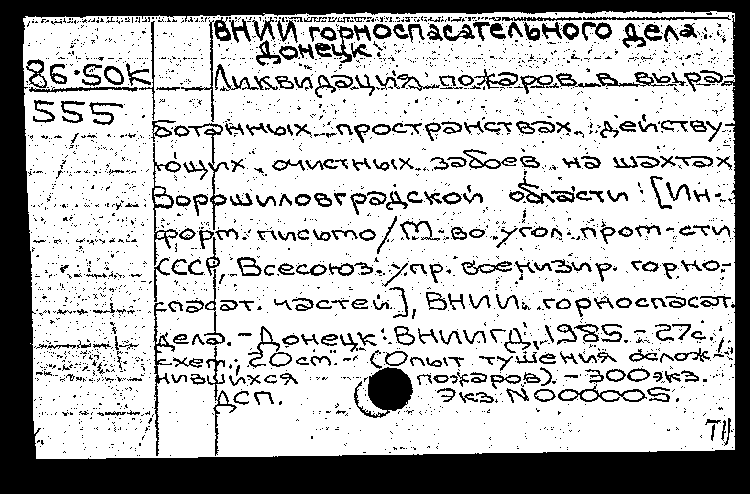 ВНИИ горноспасательного дела.
Донецк.
86-50К
Ликвидация пожаров в выра-
555
ботанных пространствах действу-
ющих очистных забоев на шахтах
Ворошиловградской области: [Ин-
форм. письмо / М-во угол. пром-сти
СССР, Всесоюз. упр. военизир. горно-
спасат. частей], ВНИИ горноспасат.
дела. - Донецк: ВНИИГД, 1985. - 27с.,
схем.; 20 см. - (Опыт тушения ослож-
нившихся пожаров). - 300 экз.
ДСП. Экз. N000005.